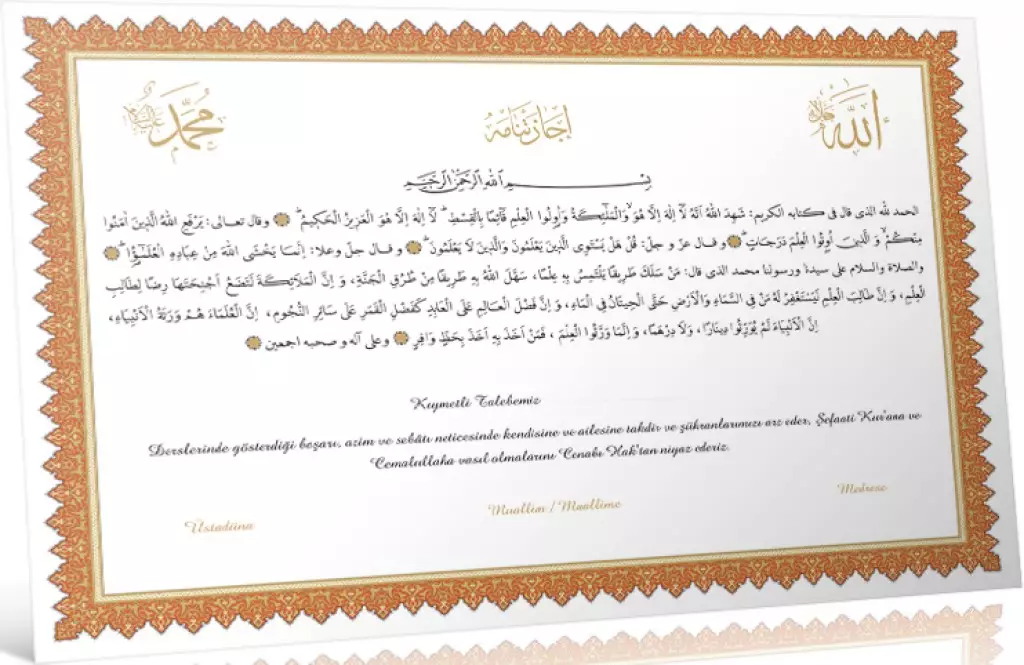 الله جل جلاله
إجازتنامه
محمد عليه السلام
بِسْمِ اللهِ الرَّحْمٰنِ الرَّحِيمِ
الحمد لله الذى قال فى كتابه الكريم: شَهِدَ اللهُ اَنَّهُ لَا اِلٰهَ اِلَّا هُوَ وَالْمَلٰئِكَةُ وَاُولُوا الْعِلْمِ قَائِمًا بِالْقِسْطِ لَا اِلٰهَ اِلَّا هُوَ الْعَزِيزُ الْحَكِيمُ وقال تعالى: يَرْفَعِ اللهُ الَّذِينَ اٰمَنُوا
مِنْكُمْ وَالَّذِينَ اُوتُوا الْعِلْمَ دَرَجَاتٍ و قال عزّ و جلّ: قُلْ هَلْ يَسْتَوِى الَّذِينَ يَعْلَمُونَ وَالَّذِينَ لَا يَعْلَمُونَ و قال جلّ وعلا: اِنَّمَا يَخْشَى اللهَ مِنْ عِبَادِهِ الْعُلَمٰٓؤُا
والصلاة والسلام على سيدنا ورسولنا محمد الذى قال: مَنْ سَلَكَ طَرِيقًا يَلْتَمِسُ بِهِ عِلْمًا، سَهَّلَ اللهُ بِهِ طَرِيقًا مِنْ طُرُقِ الْجَنَّةِ، وَ اِنَّ الْمَلَائِكَةَ لَتَضَعُ اَجْنِحَتَهَا رِضًا لِطَالِبِ
الْعِلْمِ، وَ اِنَّ طَالِبَ الْعِلْمِ لَيَسْتَغْفِرُ لَهُ مَنْ فِى السَّمَاءِ وَالْاَرْضِ حَتَّى الْحِيتَانُ فِى الْمَاءِ، وَ اِنَّ فَضْلَ الْعَالِمِ عَلَى الْعَابِدِ كَفَضْلِ الْقَمَرِ عَلَى سَائِرِ النُّجُومِ، اِنَّ الْعُلَمَاءَ هُمْ وَرَثَةُ الْاَنْبِيَاءِ،
اِنَّ الْاَنْبِيَاءَ لَمْ يُوَرِّثُوا دِينَارًا، وَلَا دِرْهَمًا، وَ اِنَّمَا وَرَّثُوا الْعِلْمَ ، فَمَنْ اَخَذَ بِهِ اَخَذَ بِحَظٍّ وَافِرٍ وعلى آله و صحبه اجمعين
Kıymetli Talebemiz
Derslerinde gösterdiği başarı, azim ve sebâtı neticesinde kendisine ve ailesine takdir ve şükranlarımızı arz eder, Şefaati Kur'ana ve
Cemalullaha vasıl olmalarını Cenabı Hak'tan niyaz ederiz.
Üstadüna
Muallim / Muallime
Medrese